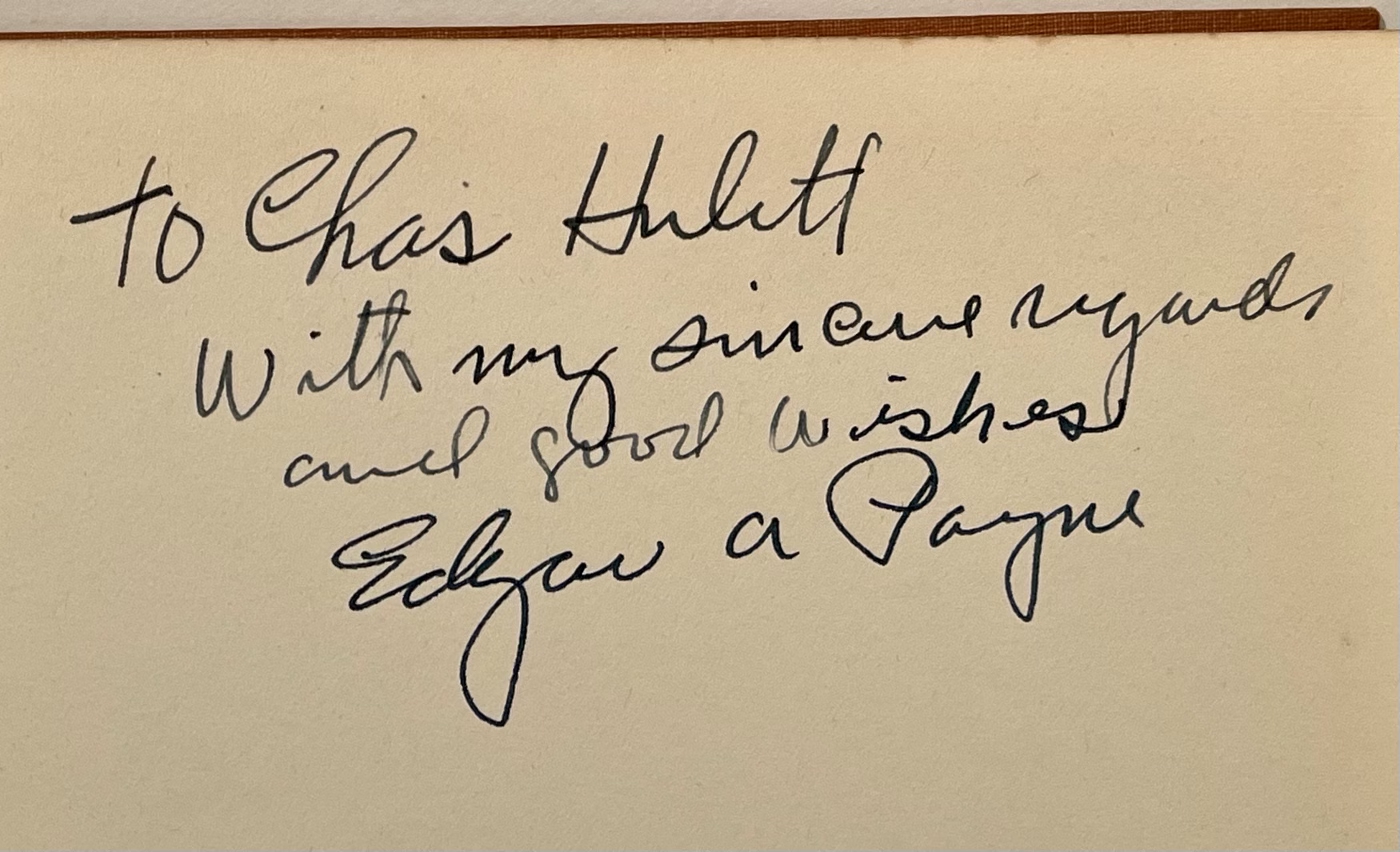 To Chas Hulett
With my sincere regards
and good wishes
Edgar a Payne